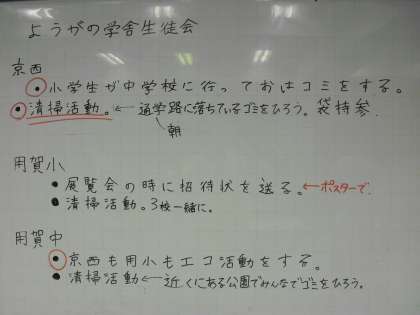 ようがの学舎生徒会
京西
● 小学生が中学校に行っておはコミをする。
● 清掃活動。← 通学路に落ちているゴミをひろう。袋持参.
朝
用賀小
● 展覧会の時に招待状を送る。←ポスターで.
● 清掃活動。3校一緒に。
用賀中
● 京西も用小もエコ活動をする。
● 清掃活動 ← 近くにある公園でみんなでゴミをひろう。